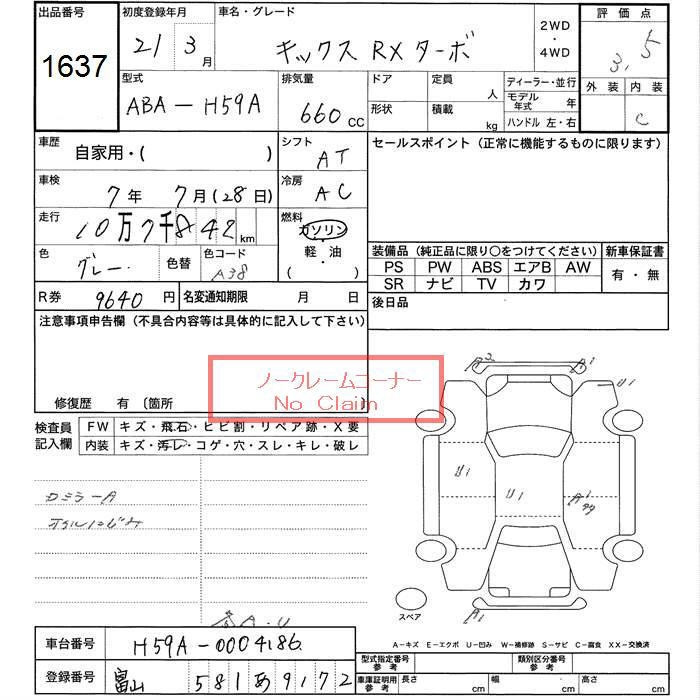 出品番号
1637
初度登録年月
21 3月
車名・グレード
キックス RX ターボ
2WD
・
4WD
評価点
3.5
外装 内装
C
型式
ABA-H59A
排気量
660 cc
ドア
形状
定員 人
積載 kg
ディーラー・並行
モデル年式 年
ハンドル 左・右
車歴
自家用・( )
シフト
AT
車検
7年 7月(28日)
冷房
AC
走行
10万7千842km
燃料
ガソリン
・
軽・油
( )
色
グレー
色替
色コード
A38
R券 9640 円
名変通知期限 月 日
セールスポイント(正常に機能するものに限ります)
装備品(純正品に限り○をつけてください)
PS PW ABS エアB AW
SR ナビ TV カワ
新車保証書
有・無
後日品
注意事項申告欄(不具合内容等は具体的に記入して下さい)
ノークレームコーナー
No Claim
修復歴 有〔箇所
検査員記入欄
FW キズ・飛石・ヒビ割・リペア跡・X要
内装 キズ・汚レ・コゲ・穴・スレ・キレ・破レ
ロミラーA
A2
A1
U1
U1
U1
A1
スペア
A・U
A-キズ E-エクボ U-凹み W-補修跡 S-サビ C-腐食 XX-交換済
車台番号 H59A-0004186
登録番号 富山 581 あ 9172
型式指定番号 参考
類別区分番号 参考
車庫証明用 参考 長さ cm 幅 cm 高さ cm